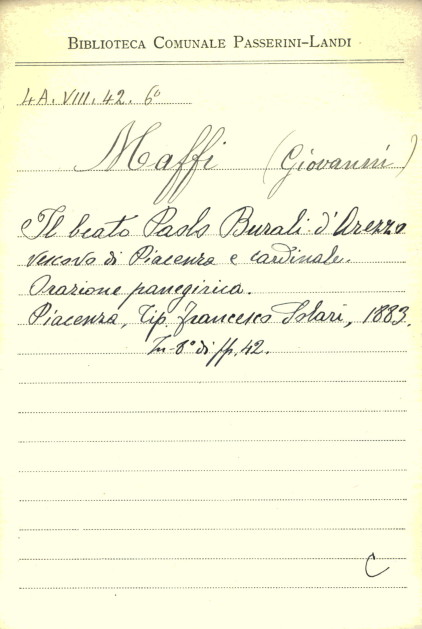 BIBLIOTECA COMUNALE PASSERINI-LANDI
4A. VIII. 42. 6°
Maffi (Giovanni)
Il beato Paolo Burali d'Arezzo
vescovo di Piacenza e cardinale.
Orazione panegirica.
Piacenza, Tip. Francesco Solari, 1883.
In-8° di pp. 42.
C